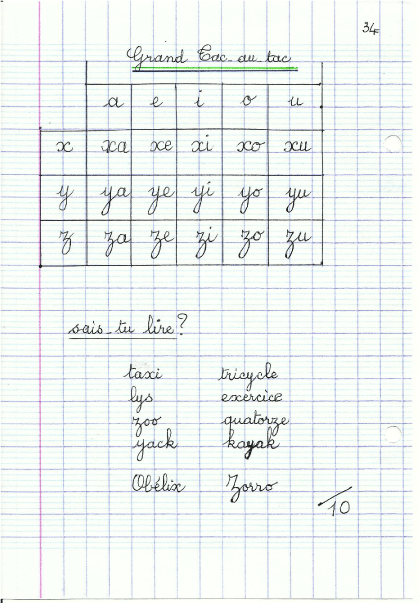 34
Grand Tac-au-tac
a e i o u
x xa xe xi xo xu
y ya ye yi yo yu
z za ze zi zo zu
sais-tu lire?
taxi tricycle
lys exercice
zoo quatorze
yack kayak
Obélix Zorro
/10